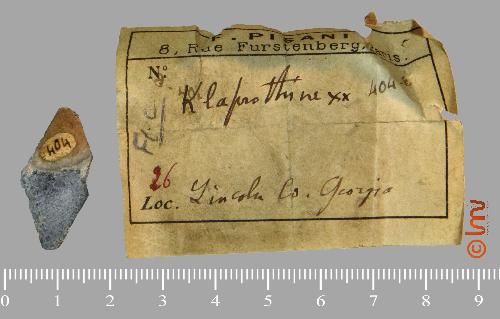 F. PISANI
8, Rue Furstenberg, Paris.
Nº
Klaprothine xx 404
404
26
Loc. Lincoln Co. Georgia
© lmv
0 1 2 3 4 5 6 7 8 9